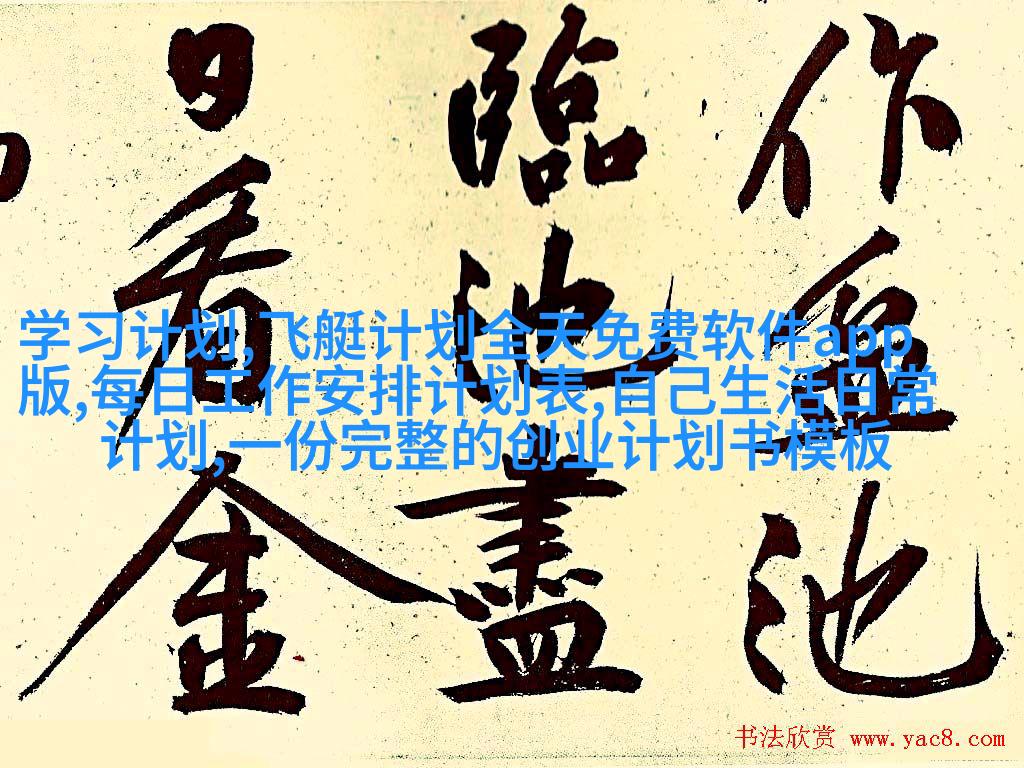 作池
臨池盡
日看金
学习计划,飞艇计划全天免费软件app
版,每日工作安排计划表,自己生活日常
计划,一份完整的创业计划书模板
书法欣赏 www.yac8.com